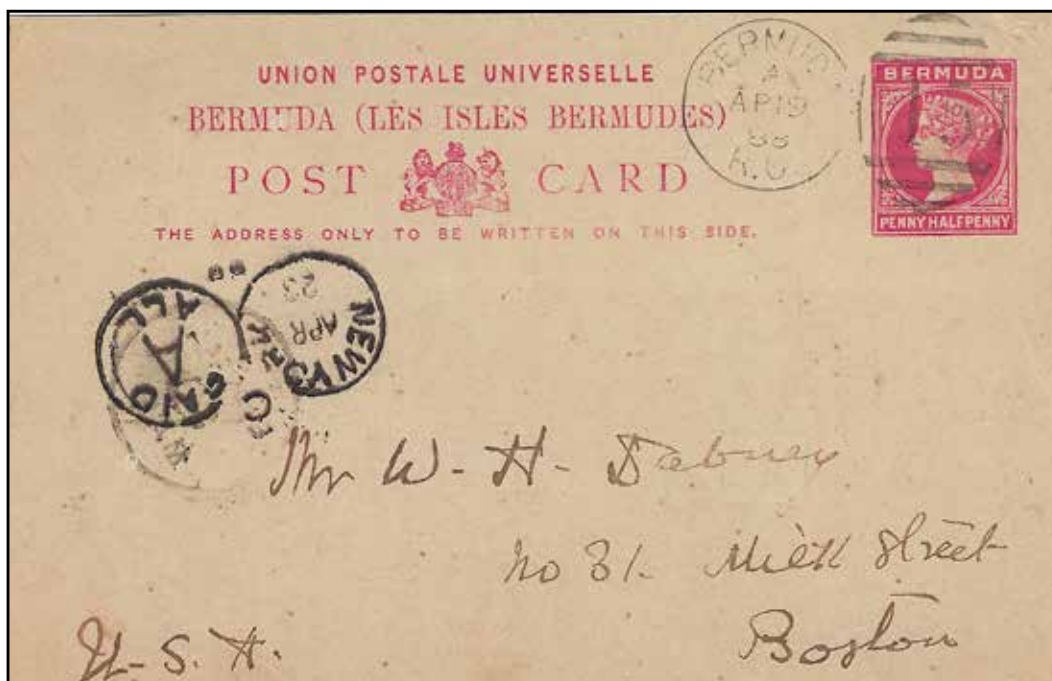 UNION POSTALE UNIVERSELLE
BERMUDA (LES ISLES BERMUDES)
POST CARD
THE ADDRESS ONLY TO BE WRITTEN ON THIS SIDE.
BERMUDA
A
AP 19
88
BERMUDA
PENNY HALFPENNY
NEW YORK
APR
23
88
PAID
A
ALL
Mr W-H-Dabney
No 31. Milk Street
Boston
U-S.A.